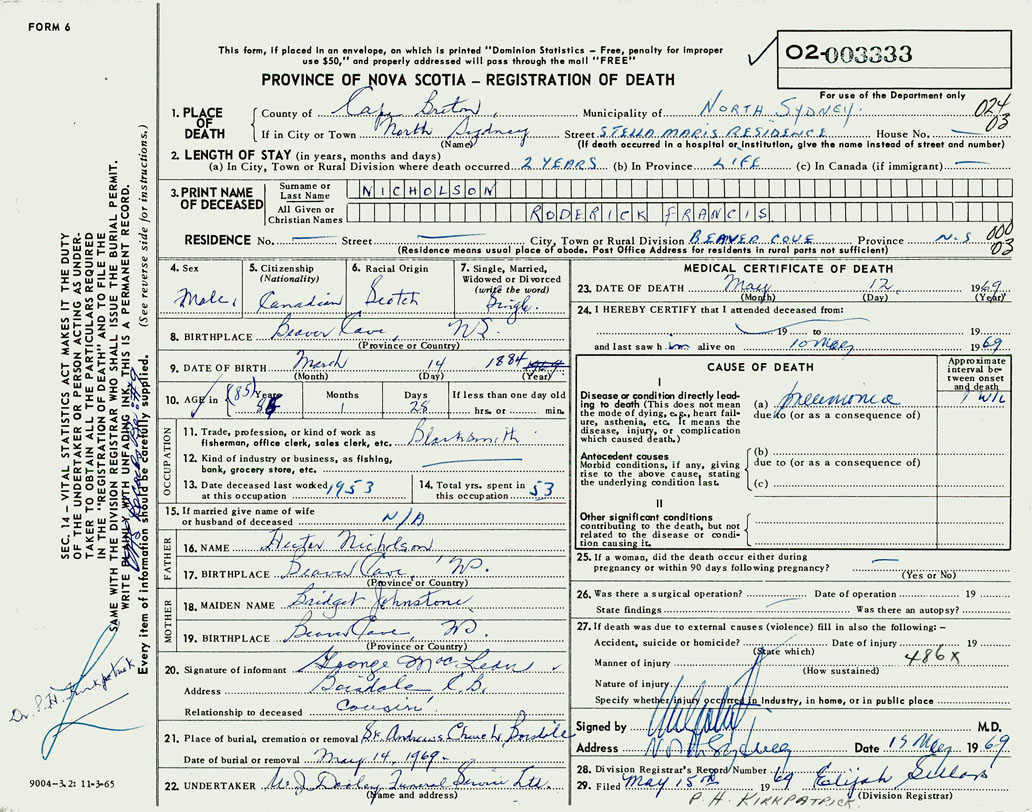 FORM 6
This form, if placed in an envelope, on which is printed "Dominion Statistics – Free, penalty for improper
use $50," and properly addressed will pass through the mail "FREE"
02-003333
PROVINCE OF NOVA SCOTIA – REGISTRATION OF DEATH
For use of the Department only
024
03
1. PLACE OF DEATH
County of Cape Breton, Municipality of NORTH SYDNEY.
If in City or Town North Sydney Street STELLA MARIS RESIDENCE House No. —
(Name) (If death occurred in a hospital or institution, give the name instead of street and number)
2. LENGTH OF STAY (in years, months and days)
(a) In City, Town or Rural Division where death occurred 2 YEARS (b) In Province LIFE (c) In Canada (if immigrant) —
3. PRINT NAME OF DECEASED
Surname or Last Name NICHOLSON
All Given or Christian Names RODERICK FRANCIS
RESIDENCE No. — Street — City, Town or Rural Division BEAVER COVE Province N.S
000
03
(Residence means usual place of abode. Post Office Address for residents in rural parts not sufficient)
4. Sex
Male,
5. Citizenship (Nationality)
Canadian
6. Racial Origin
Scotch
7. Single, Married, Widowed or Divorced (write the word)
Single.
8. BIRTHPLACE Beaver Cove, NS.
(Province or Country)
9. DATE OF BIRTH March 14 1884
(Month) (Day) (Year)
10. AGE in (85) Years Months 1 Days 28 If less than one day old hrs. or min.
OCCUPATION
11. Trade, profession, or kind of work as fisherman, office clerk, sales clerk, etc. Blacksmith
12. Kind of industry or business, as fishing, bank, grocery store, etc. —
13. Date deceased last worked at this occupation 1953
14. Total yrs. spent in this occupation 53
15. If married give name of wife or husband of deceased N/A
FATHER
16. NAME Hector Nicholson
17. BIRTHPLACE Beaver Cove, NS.
(Province or Country)
MOTHER
18. MAIDEN NAME Bridget Johnstone
19. BIRTHPLACE Beaver Cove, NS.
(Province or Country)
20. Signature of informant George MacLean
Address Boisdale C.B.
Relationship to deceased Cousin
21. Place of burial, cremation or removal St. Andrews Church, Boisdale
Date of burial or removal May 14, 1969-
22. UNDERTAKER W. J. Dooley Funeral Service Ltd.
(Name and address)
MEDICAL CERTIFICATE OF DEATH
23. DATE OF DEATH May 12, 1969
(Month) (Day) (Year)
24. I HEREBY CERTIFY that I attended deceased from:
19 to 19
and last saw him alive on 10 May 1969
CAUSE OF DEATH
Approximate interval between onset and death
I
Disease or condition directly leading to death (This does not mean the mode of dying, e.g., heart failure, asthenia, etc. It means the disease, injury, or complication which caused death.)
(a) pneumonia 1 wk
due to (or as a consequence of)
Antecedent causes
Morbid conditions, if any, giving rise to the above cause, stating the underlying condition last.
(b)
due to (or as a consequence of)
(c)
II
Other significant conditions contributing to the death, but not related to the disease or condition causing it.
25. If a woman, did the death occur either during pregnancy or within 90 days following pregnancy? —
(Yes or No)
26. Was there a surgical operation? Date of operation 19
State findings Was there an autopsy?
27. If death was due to external causes (violence) fill in also the following: –
Accident, suicide or homicide? Date of injury 19
(State which)
486X
Manner of injury
(How sustained)
Nature of injury
Specify whether injury occurred in Industry, in home, or in public place
Signed by M.D.
Address North Sydney Date 15 May 1969
28. Division Registrar's Record Number
29. Filed May 15th 1969 Elijah
(Division Registrar)
P. H. KIRKPATRICK.
SEC. 14 – VITAL STATISTICS ACT MAKES IT THE DUTY
OF THE UNDERTAKER OR PERSON ACTING AS UNDER-
TAKER TO OBTAIN ALL THE PARTICULARS REQUIRED
IN THE "REGISTRATION OF DEATH" AND TO FILE THE
SAME WITH THE DIVISION REGISTRAR WHO SHALL ISSUE THE BURIAL PERMIT.
WRITE PLAINLY WITH UNFADING INK, THIS IS A PERMANENT RECORD.
Every item of information should be carefully supplied. (See reverse side for instructions.)
Dr. P. H. Kirkpatrick
9004-3.2: 11-3-65